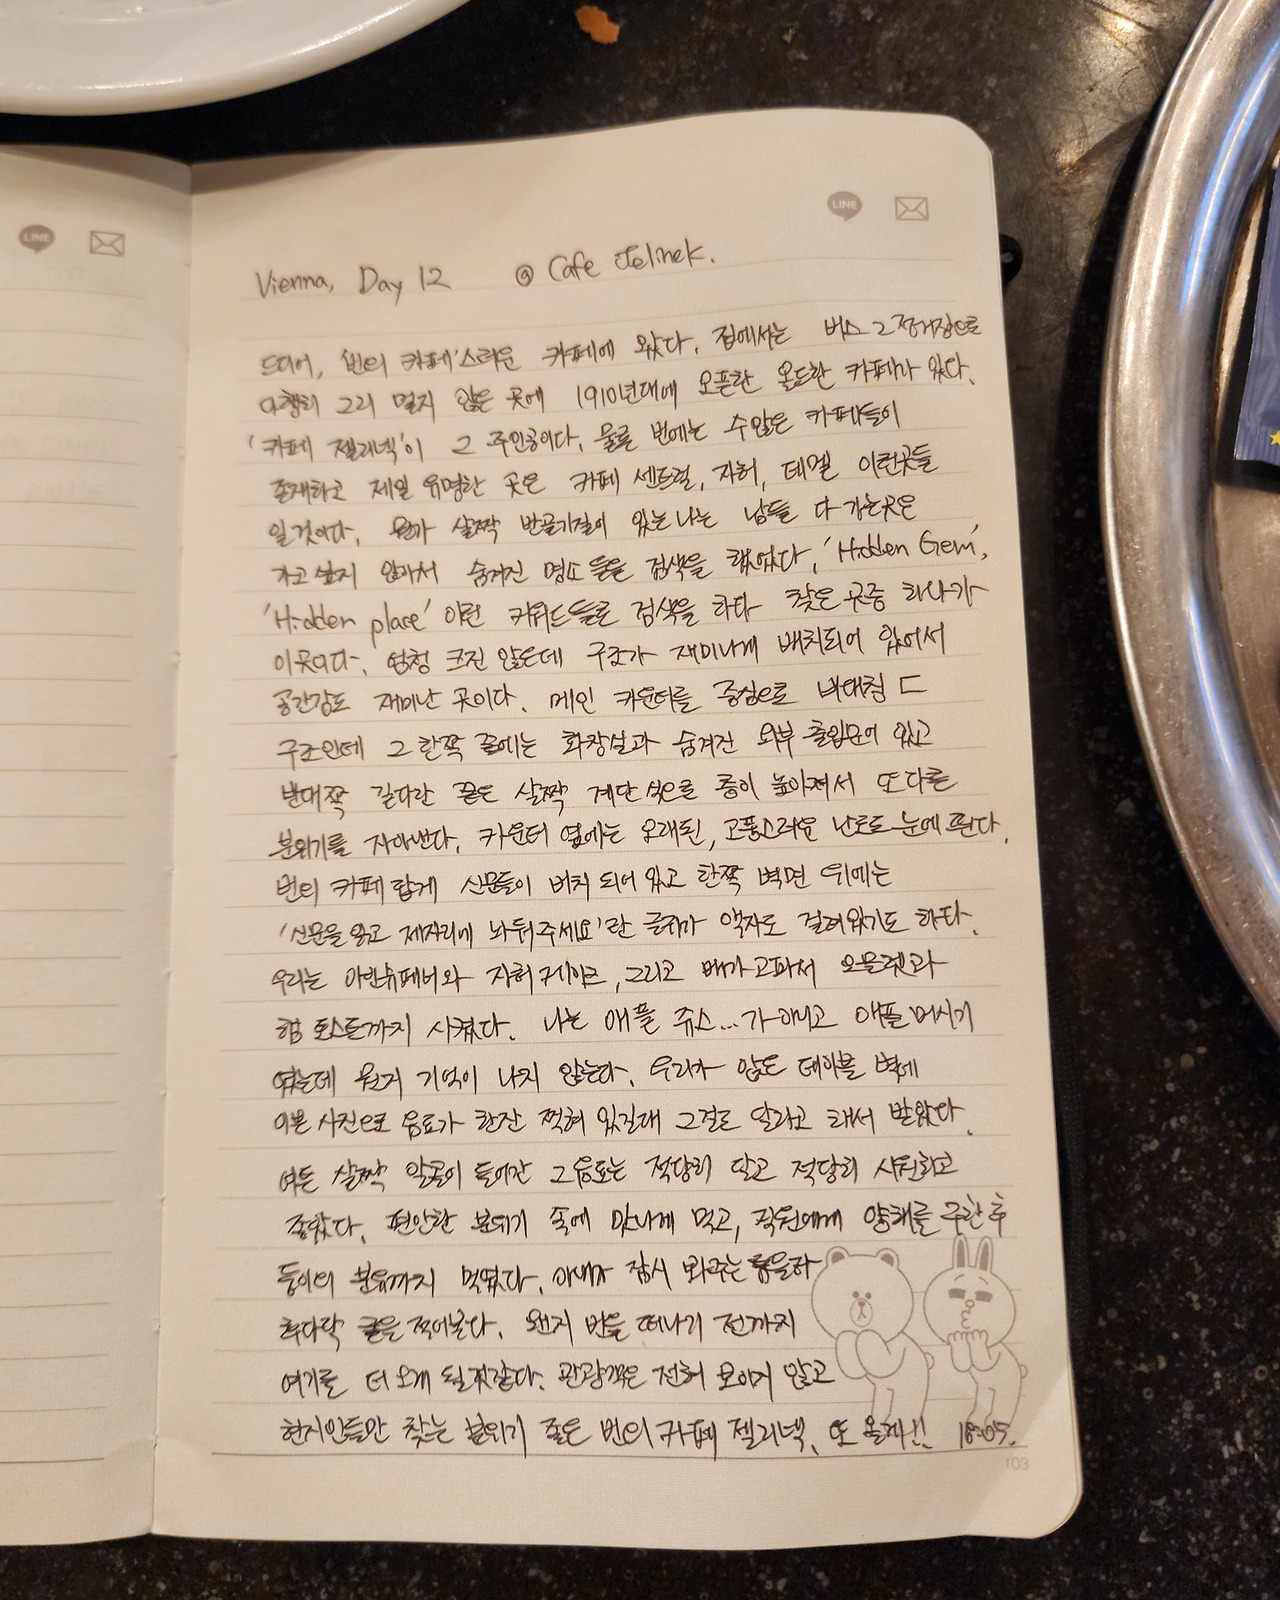 LINE
LINE
Vienna, Day 12 @ Cafe Jelinek.
드디어, '빈의 카페'스러운 카페에 왔다. 집에서는 버스 2정거장으로
다행히 그리 멀지 않은 곳에 1910년대에 오픈한 올드한 카페가 있다.
'카페 젤리넥'이 그 주인공이다. 물론 빈에는 수많은 카페들이
존재하고 제일 유명한 곳은 카페 센트럴, 자허, 데멜 이런곳들
일 것이다. 뭔가 살짝 반골기질이 있는 나는 남들 다 가는곳은
가고 싶지 않아서 숨겨진 명소 들을 검색을 했었다. 'Hidden Gem',
'Hidden place' 이런 키워드들로 검색을 하다 찾은 곳중 하나가
이곳이다. 엄청 크진 않은데 구조가 재미나게 배치되어 있어서
공간감도 재미난 곳이다. 메인 카운터를 중심으로 비대칭 ㄷ
구조인데 그 한쪽 끝에는 화장실과 숨겨진 외부 출입문이 있고
반대쪽 길다란 끝은 살짝 계단 식으로 층이 높아져서 또 다른
분위기를 자아낸다. 카운터 옆에는 오래된, 고풍스러운 난로도 눈에 띈다.
빈의 카페 답게 신문들이 비치 되어 있고 한쪽 벽면 위에는
'신문을 읽고 제자리에 놔둬주세요'란 글귀가 액자도 걸려있기도 하다.
우리는 아인슈페너와 자허 케이크, 그리고 배가 고파서 오믈렛과
햄 토스트까지 시켰다. 나는 애플 쥬스...가 아니고 애플 머시기
였는데 뭔지 기억이 나지 않는다. 우리가 앉은 테이블 벽에
이쁜 사진으로 음료가 한잔 찍혀 있길래 그걸로 달라고 해서 받았다.
여튼 살짝 알콜이 들어간 그 음료는 적당히 달고 적당히 시원하고
좋았다. 편안한 분위기 속에 맛나게 먹고, 직원에게 양해를 구한 후
둥이의 분유까지 먹였다. 아내가 잠시 봐주는 틈을타
후다닥 글을 적어본다. 왠지 빈을 떠나기 전까지
여기를 더 오게 될 것같다. 관광객은 전혀 보이지 않고
현지인들만 찾는 분위기 좋은 빈의 카페 젤리넥, 또 올께!! 18:05.
103